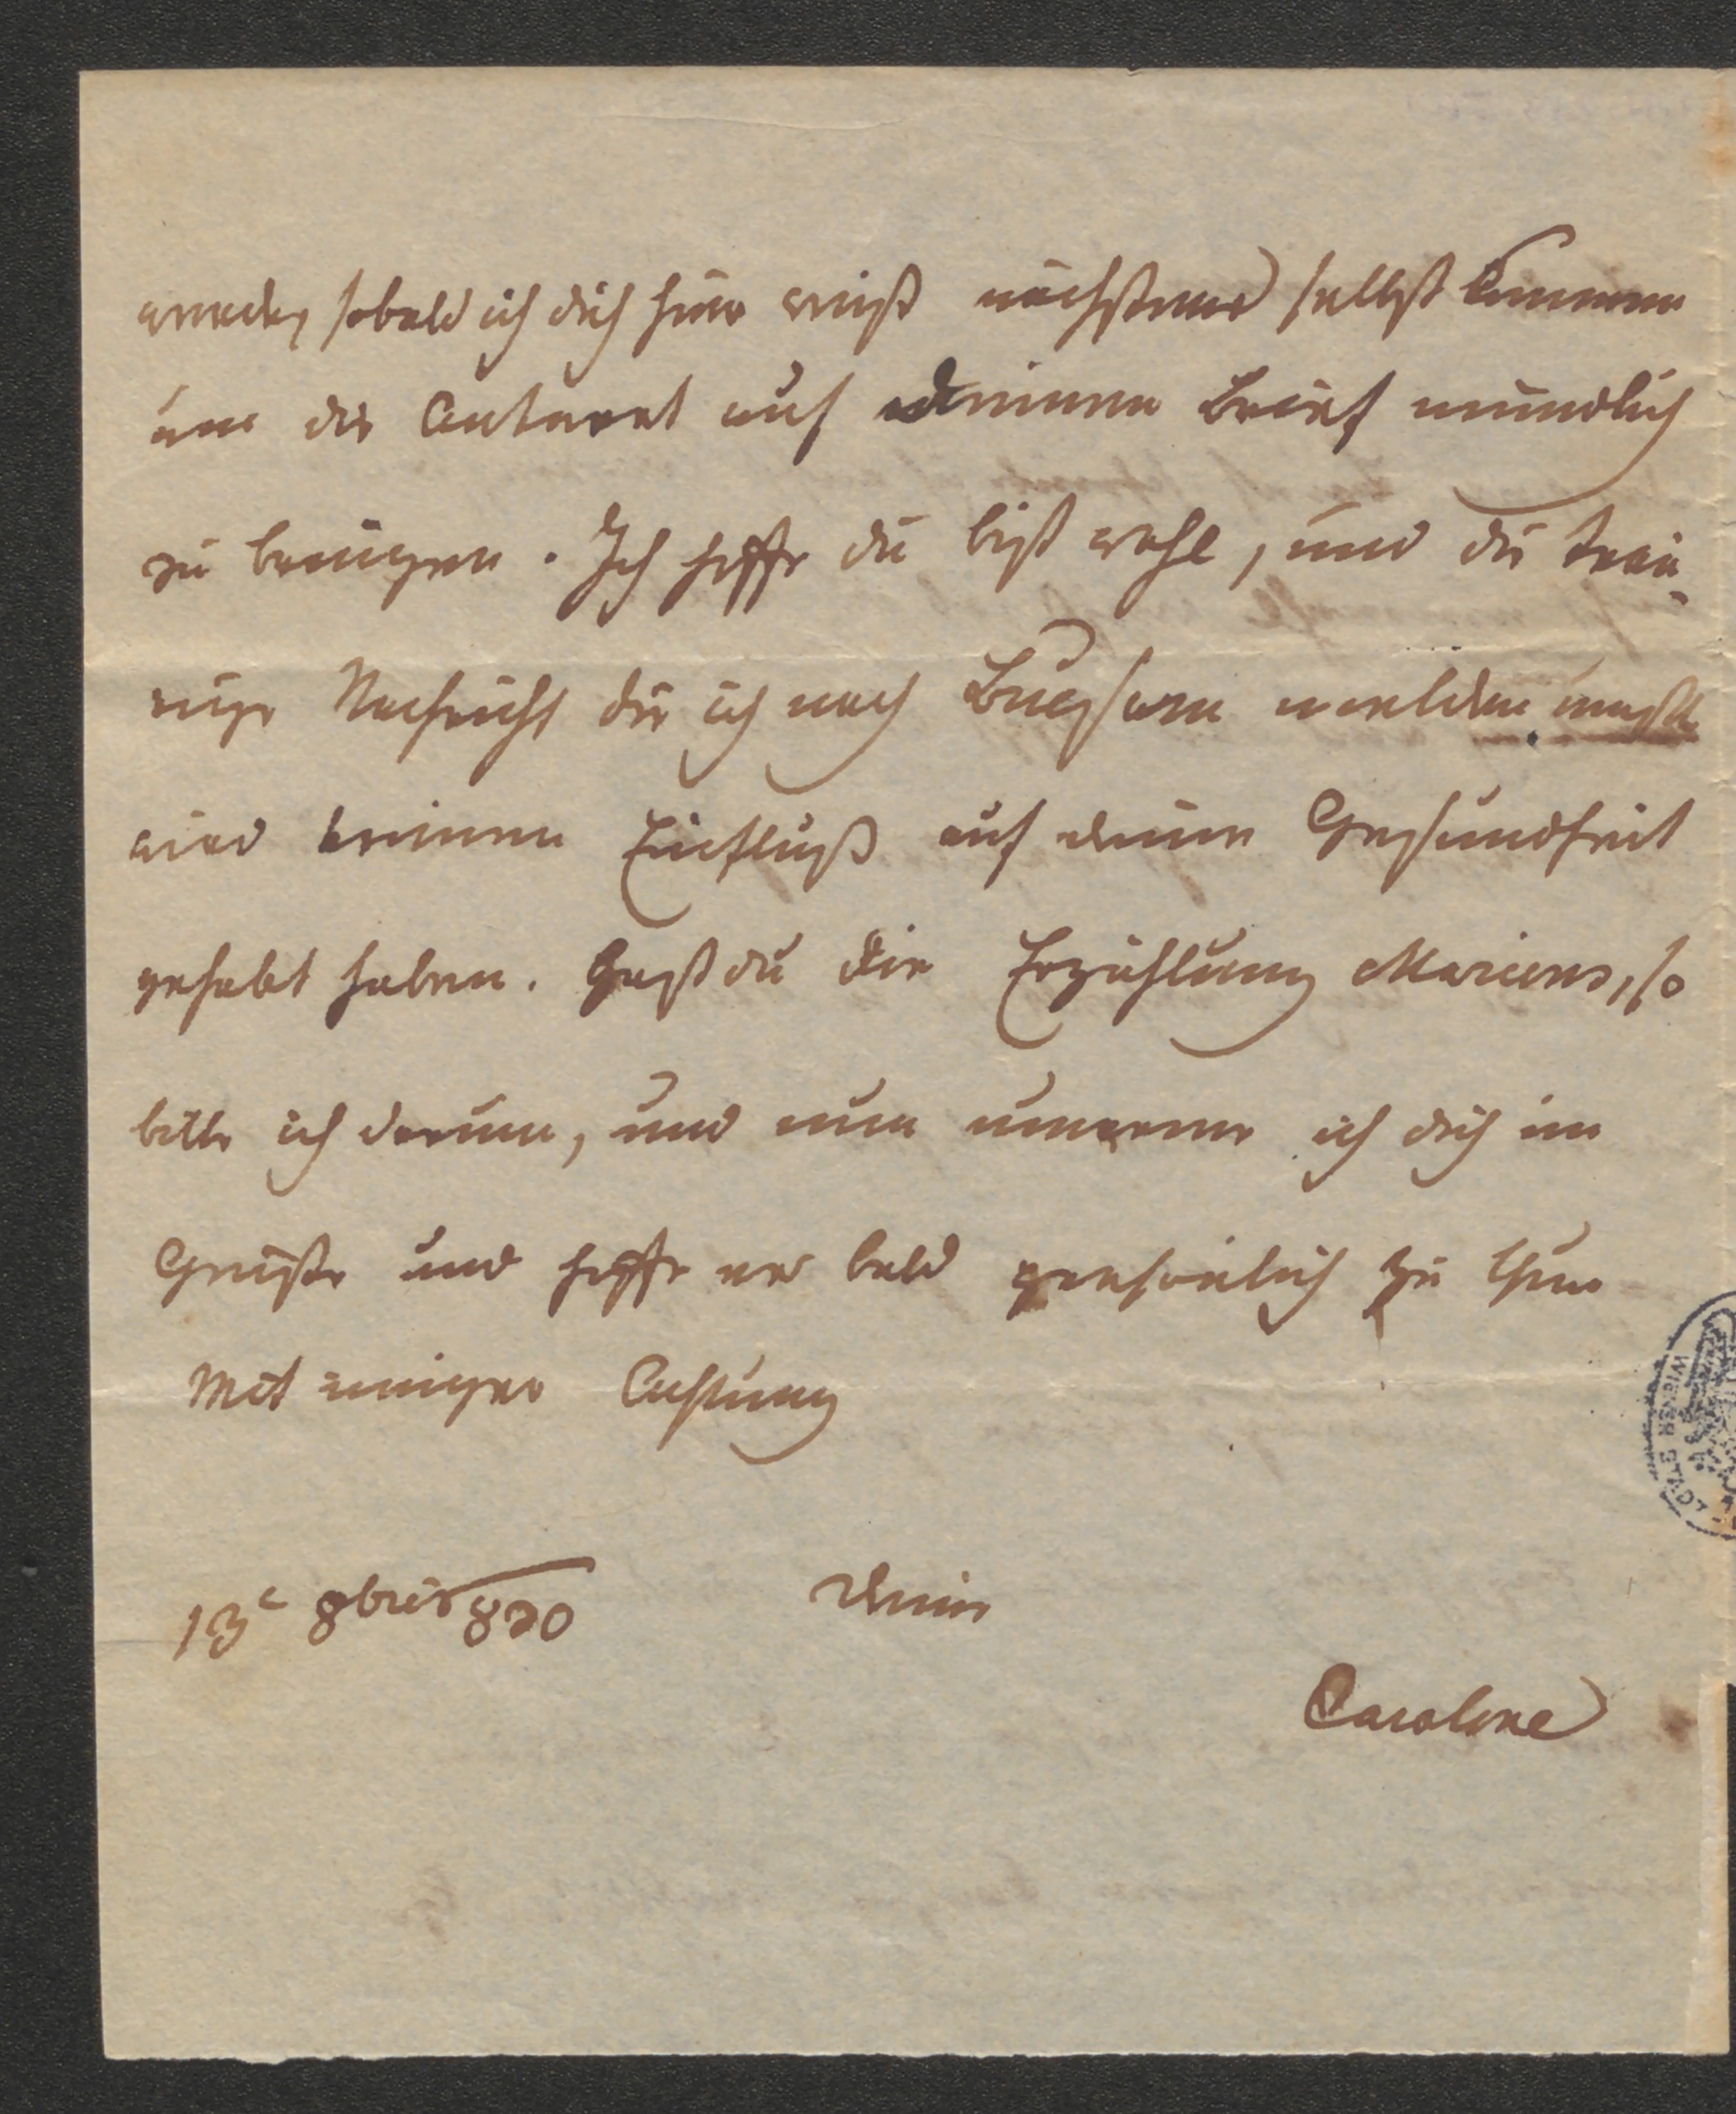 werde, sobald ich dich hier weiß nächstens selbst kommen
um die Antwort auf deinen Brief mündlich
zu bringen. Ich hoffe du bist wohl, und die trau-
rige Nachricht die ich nach melden mußte
wird keinen Einfluß auf deine Gesundheit
gehabt haben. Hast du die Erzählung Mariens, so
bitte ich darum, und nun umarme ich dich im
Geiste und hoffe es bald persönlich zu thun
Mit inniger Achtung
13t 8bris 820 Deine
Caroline
WIENER STADT